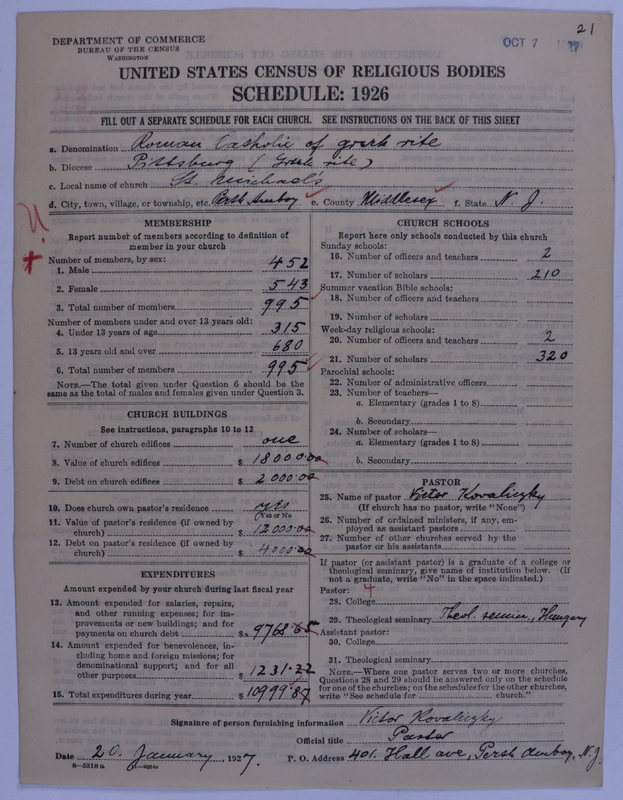 21
DEPARTMENT OF COMMERCE
BUREAU OF THE CENSUS
WASHINGTON
OCT 7
UNITED STATES CENSUS OF RELIGIOUS BODIES
SCHEDULE: 1926
FILL OUT A SEPARATE SCHEDULE FOR EACH CHURCH. SEE INSTRUCTIONS ON THE BACK OF THIS SHEET
a. Denomination Roman Catholic of greek rite
b. Diocese Pittsburg (Greek rite)
c. Local name of church St. Michael's
d. City, town, village, or township, etc. Perth Amboy e. County Middlesex f. State N. J.
MEMBERSHIP
Report number of members according to definition of
member in your church
Number of members, by sex:
1. Male 452
2. Female 543
3. Total number of members 995
Number of members under and over 13 years old:
4. Under 13 years of age 315
5. 13 years old and over 680
6. Total number of members 995
NOTE.—The total given under Question 6 should be the
same as the total of males and females given under Question 3.
CHURCH BUILDINGS
See instructions, paragraphs 10 to 12
7. Number of church edifices one
8. Value of church edifices $ 18000.00
9. Debt on church edifices $ 2000.00
10. Does church own pastor's residence yes
(Yes or No)
11. Value of pastor's residence (if owned by
church) $ 12000.00
12. Debt on pastor's residence (if owned by
church) $ 4000.00
EXPENDITURES
Amount expended by your church during last fiscal year
13. Amount expended for salaries, repairs,
and other running expenses; for im-
provements or new buildings; and for
payments on church debt $ 9768.65
14. Amount expended for benevolences, in-
cluding home and foreign missions; for
denominational support; and for all
other purposes $ 1231.22
15. Total expenditures during year $ 10999.87
CHURCH SCHOOLS
Report here only schools conducted by this church
Sunday schools:
16. Number of officers and teachers 2
17. Number of scholars 210
Summer vacation Bible schools:
18. Number of officers and teachers
19. Number of scholars
Week-day religious schools:
20. Number of officers and teachers 2
21. Number of scholars 320
Parochial schools:
22. Number of administrative officers
23. Number of teachers—
a. Elementary (grades 1 to 8)
b. Secondary
24. Number of scholars—
a. Elementary (grades 1 to 8)
b. Secondary
PASTOR
25. Name of pastor Victor Kovaliczky
(If church has no pastor, write "None")
26. Number of ordained ministers, if any, em-
ployed as assistant pastors
27. Number of other churches served by the
pastor or his assistants
If pastor (or assistant pastor) is a graduate of a college or
theological seminary, give name of institution below. (If
not a graduate, write "No" in the space indicated.)
Pastor: 4
28. College
29. Theological seminary Theol. semin., Hungary
Assistant pastor:
30. College
31. Theological seminary
NOTE.—Where one pastor serves two or more churches,
Questions 28 and 29 should be answered only on the schedule
for one of the churches; on the schedules for the other churches,
write "See schedule for church."
Signature of person furnishing information Victor Kovaliczky
Official title Pastor
Date 20. January, 1927. P. O. Address 401. Hall ave, Perth Amboy, N. J.
8-5318a